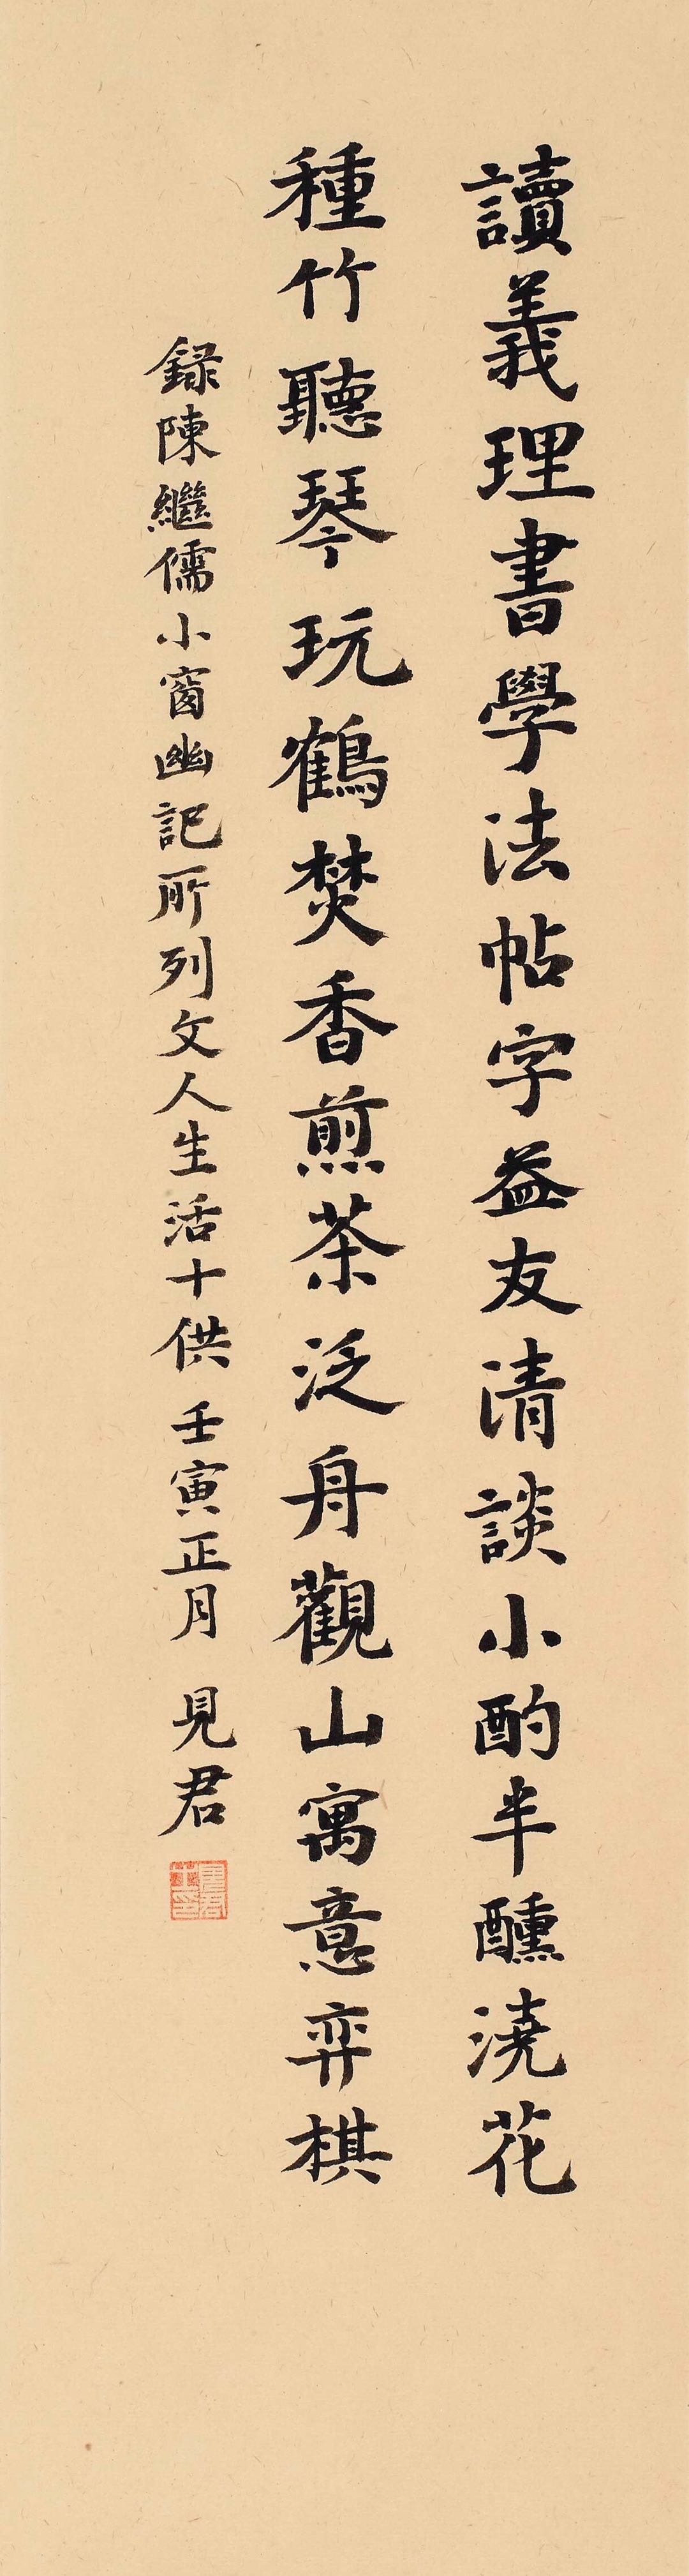 讀義理書學法帖字益友清談小酌半醺澆花
種竹聽琴玩鶴焚香煎茶泛舟觀山寓意弈棋
録陳繼儒小窗幽記所列文人生活十供 壬寅正月 見君